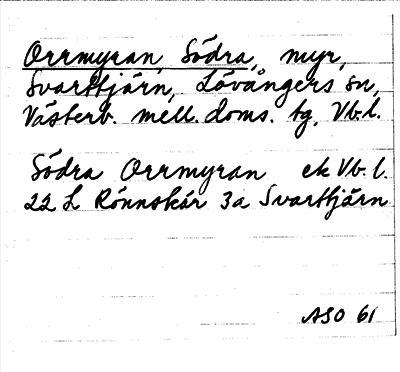 Orrmyran, Södra, myr,
Svarttjärn, Lövångers sn,
Västerb. mell. doms. tg, Vb. l.
Södra Orrmyran ek Vb. l.
22 L Rönnskär 3a Svarttjärn
ASO 61